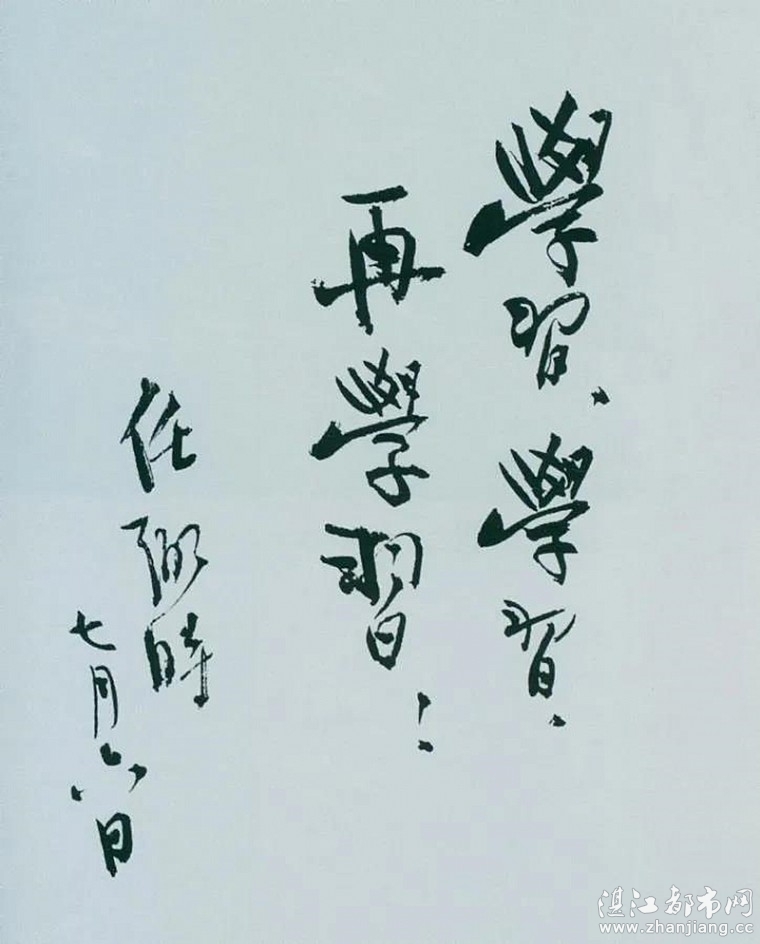 學習、學習、
再學習！
任弼時
七月六日
湛江都市网
www.zhanjiang.cc